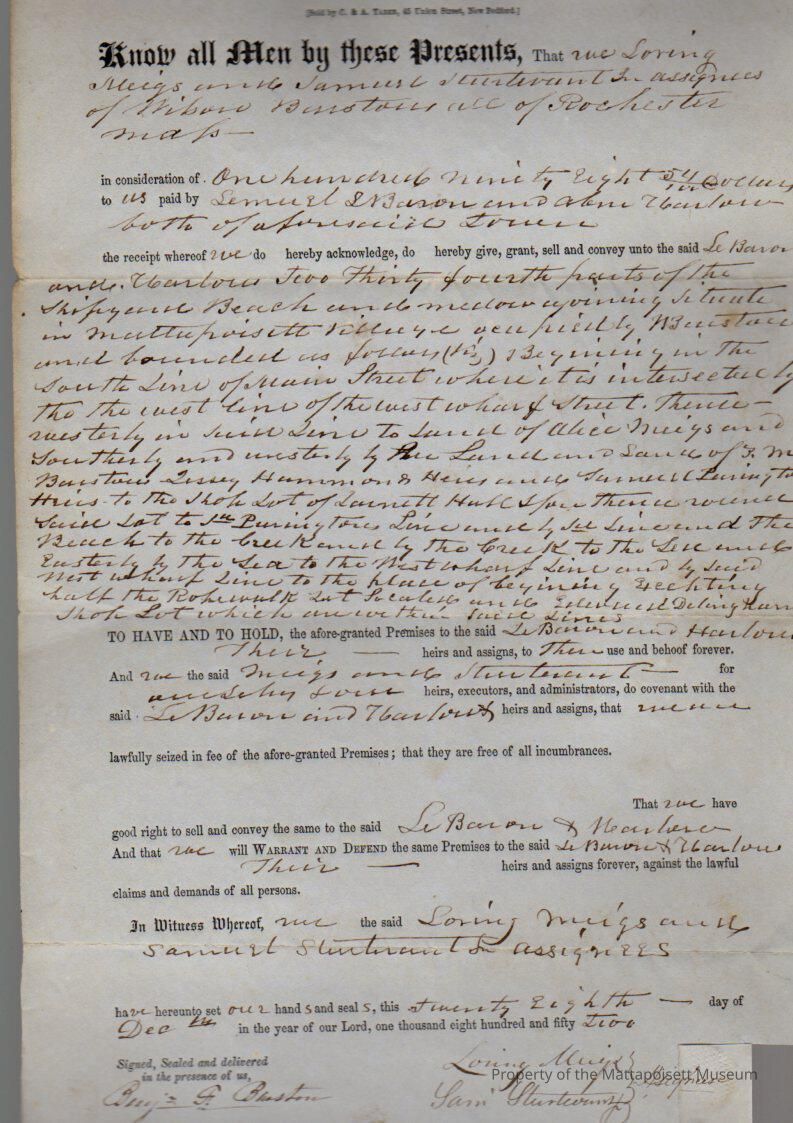 [Sold by C. & A. TABER, 45 Union Street, New Bedford.]
Know all Men by these Presents, That we Loring
Meigs and Samuel Sturtevant Jr assignees
of Wilson Barstow all of Rochester
Mass
in consideration of One hundred ninety Eight 54/100 Dollars
to us paid by Lemuel LeBaron and Abner Harlow
both of aforesaid Town
the receipt whereof we do hereby acknowledge, do hereby give, grant, sell and convey unto the said Le Baron
and Harlow Two Thirty fourth parts of the
Shipyard Beach and medow ajoining Situate
in Mattapoisett Village ocupied by W Barstow
and bounded as follow (viz) Begining in the
South Line of Main Street where it is intersected by
the the west line of the west wharf Street. Thence
westerly in said Line to Land of Alice Meigs and
Southerly and westerly by her Land and Land of F. M
Barstow Hammond Heirs and Samuel Purington
Heirs to the Shop Lot of Hall thence round
Said Lot to Sd Puringtons Line and by Sd Line and the
Beach to the Creek and by the Creek to the Sea and
Easterly by the Sea to the West wharf Line and by said
West wharf Line to the place of begining Excepting
half the Ropewalk Lot and Edward Dellingham
Shop Lot which are within said Lines
TO HAVE AND TO HOLD, the afore-granted Premises to the said LeBaron and Harlow
Their heirs and assigns, to Their use and behoof forever.
And we the said Meigs and Sturtevant for
ourselves & our heirs, executors, and administrators, do covenant with the
said LeBaron and Harlow heirs and assigns, that we are
lawfully seized in fee of the afore-granted Premises; that they are free of all incumbrances.
That we have
good right to sell and convey the same to the said Le Baron & Harlow
And that we will WARRANT AND DEFEND the same Premises to the said Le Baron & Harlow
Their heirs and assigns forever, against the lawful
claims and demands of all persons.
In Witness Whereof, we the said Loring Meigs and
Samuel Sturtevant Jr assignees
have hereunto set our hands and seals, this Twenty Eighth day of
Dec in the year of our Lord, one thousand eight hundred and fifty Two
Signed, Sealed and delivered
in the presence of us,
Loring Meigs
Benj. F. Barstow
Saml Sturtevant Jr
Assignees
Property of the Mattapoisett Museum